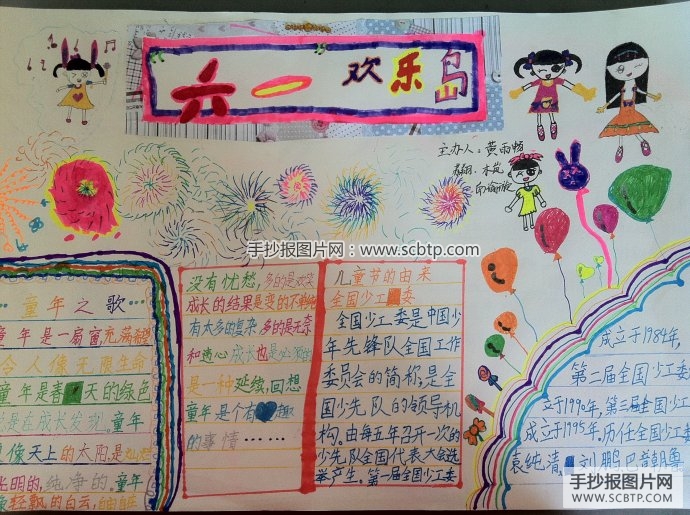 六一欢乐岛
主办人：黄雨畅
手抄报图片网：www.scbtp.com
童年之歌
童年是一扇窗,充满
合人像无限生命
童年是春天的绿色
是在成长发现。童年
像天上的太阳是
长明的,纯净的。童年
像轻飘的白云,
没有忧愁,多的是欢笑
成长的结果是变的不
有太多的复杂,多的是无奈
和违心 成长也是必
是一种延续,回想
童年是个有趣
的事情……
儿童节的由来
全国少工委
全国少工委是中国少
年先锋队全国工作
委员会的简称,是全
国少先队的领导机
构。由每五年召开一次的
少先队全国代表大会选
举产生。第一届全国少工委
成立于1984年,
第二届全国少工委
立于1990年,第三届全国少工委
成立于1995年。历任全国少工委
袁纯清、刘鹏、巴音朝鲁
手抄报图片网
WWW.SCBTP.COM